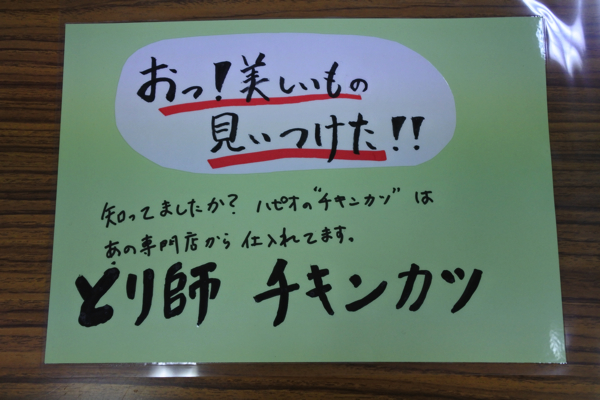 おっ!美しいもの
見いつけた!!
知ってましたか? ハピオの"チキンカツ"は
あの専門店から仕入れてます。
とり師 チキンカツ